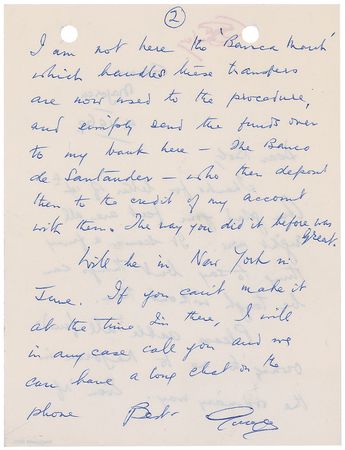 2
I am not here the 'Banca March'
which handles these transfers
are now used to the procedure,
and simply send the funds over
to my bank here – The Banco
de Santander – who then deposit
them to the credit of my account
with them. The way you did it before was
great.
Will be in New York in
June. If you can't make it
at the time I'm there, I will
in any case call you and we
can have a long chat on the
phone Best